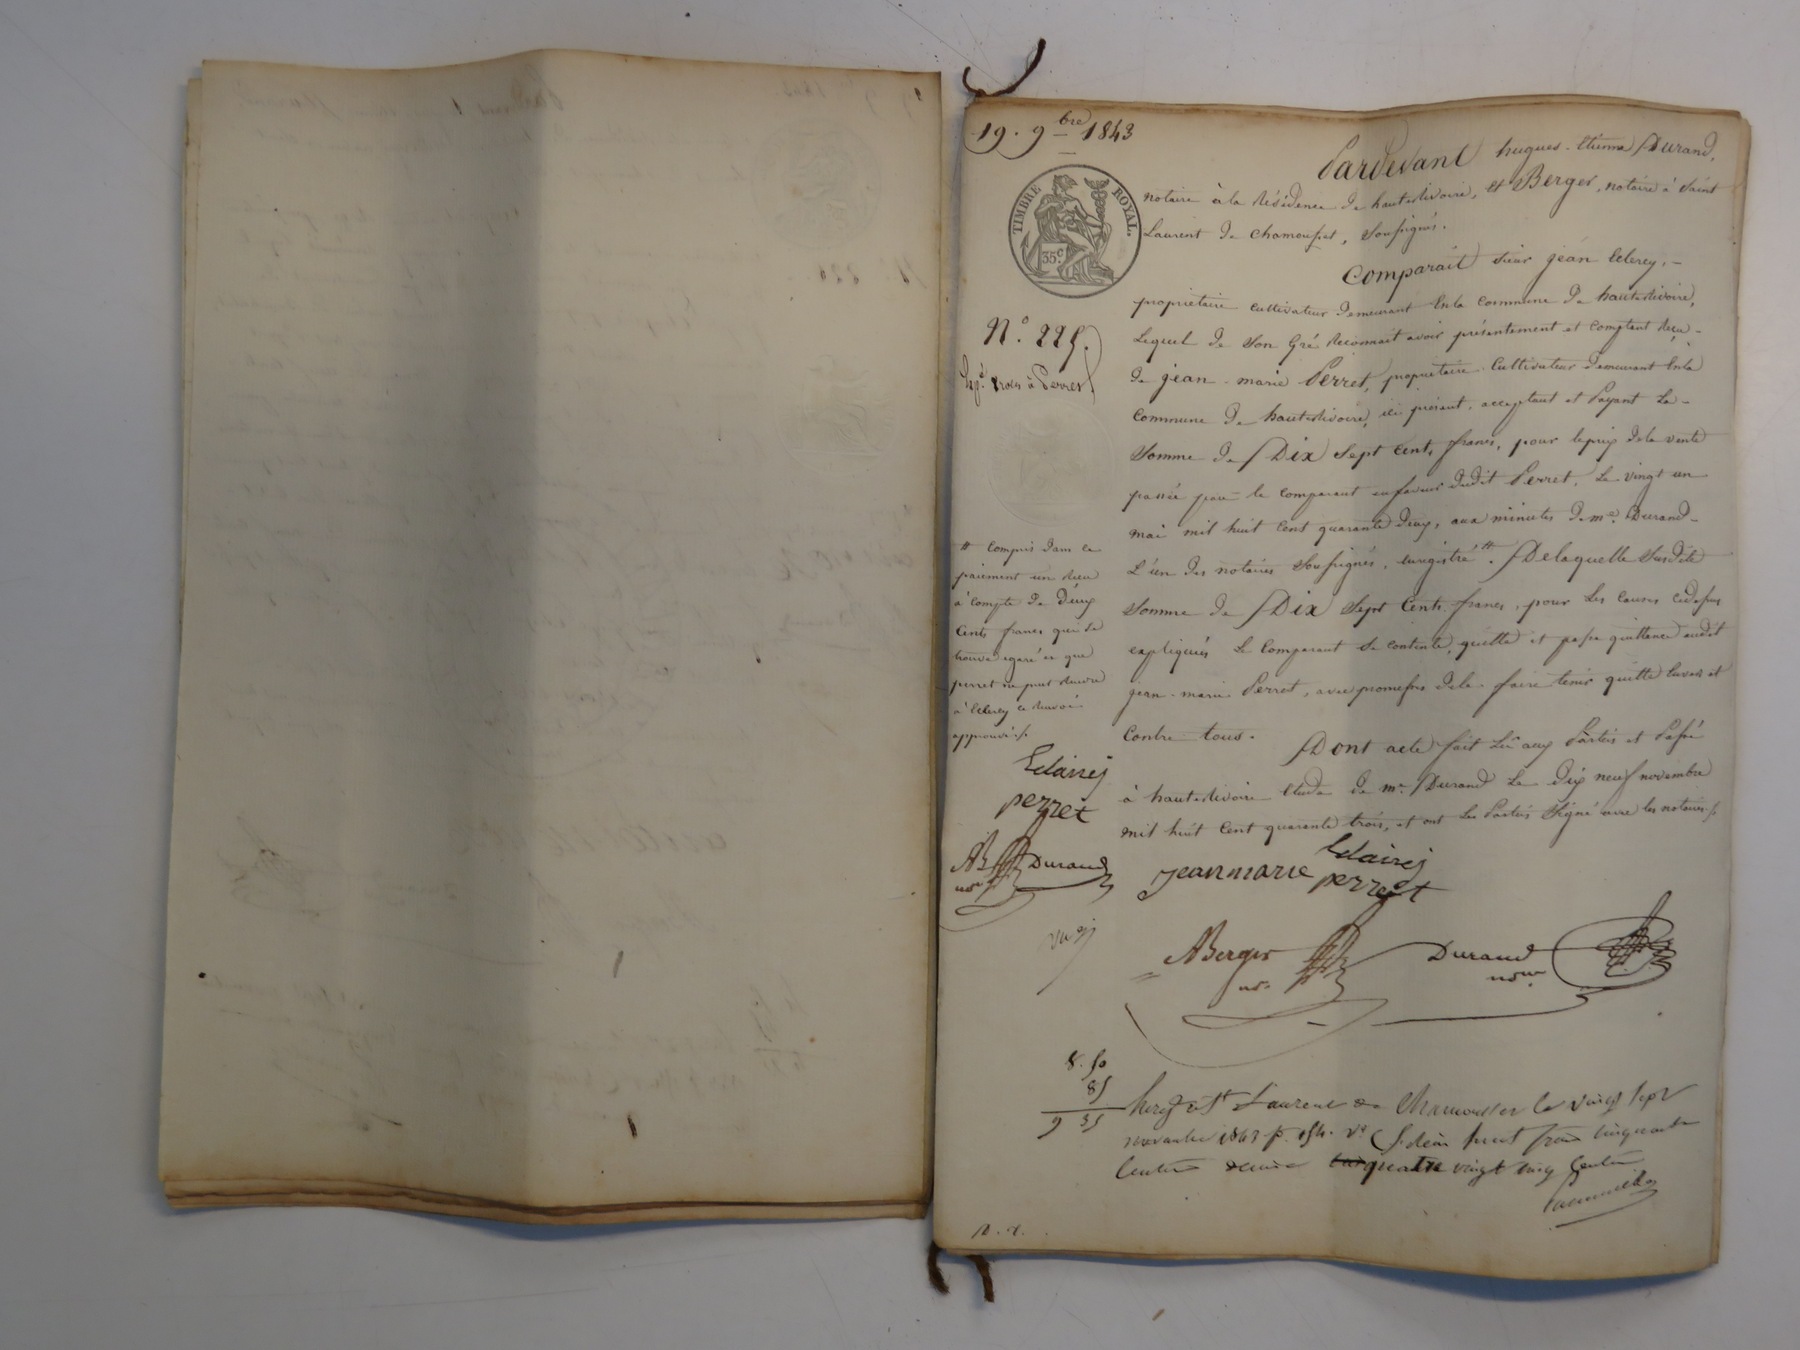 19. 9bre 1843
TIMBRE ROYAL.
35c
N.° 225.
Exp.é à Perret
Pardevant hugues-Etienne Durand,
notaire à la Résidence de hauterivoire, et Berger, notaire à Saint
Laurent de Chamousset, soussignés.
Comparait sieur jean Leclercy,-
propriétaire cultivateur demeurant En la commune de hauterivoire,
Lequel de son Gré Reconnait avoir présentement et comptant Reçu-
de jean-marie Perret, propriétaire-Cultivateur demeurant En la
commune de hauterivoire, ici présent, acceptant et Payant La-
Somme de Dix Sept Cents francs, pour le prix de la vente
passée par le comparant en faveur dudit Perret, Le vingt un
mai mil huit Cent quarante deux, aux minutes de me. Durand-
L'un des notaires soussignés, enregistré #. De laquelle Susdite
Somme de Dix Sept Cents francs, pour Les Causes cidessus
expliquées Le Comparant Se contente, quitte et passe quittance audit
jean-marie Perret, avec promesse de le faire tenir quitte Envers et
Contre tous.
Dont acte fait Lu aux Parties et Passé
à hauterivoire Etude de me. Durand Le dix neuf novembre
mil huit Cent quarante trois, et ont Les Parties Signé avec les notaires./.
# Compris dans ce
paiement un Reçu
à compte de deux
Cents francs qui Se
trouve egaré et que
perret ne peut
à
approuvé./.
perret
AB Durand
nre
jeanmarie perret
ABerger
nre
Durand
nre
Vu
8. 50
85
9 35
Enregé à St Laurent de Chamousset le vingt sept
novembre 1843 fo. 154. vo huit francs cinquante
Centimes quatre vingt cinq Centimes